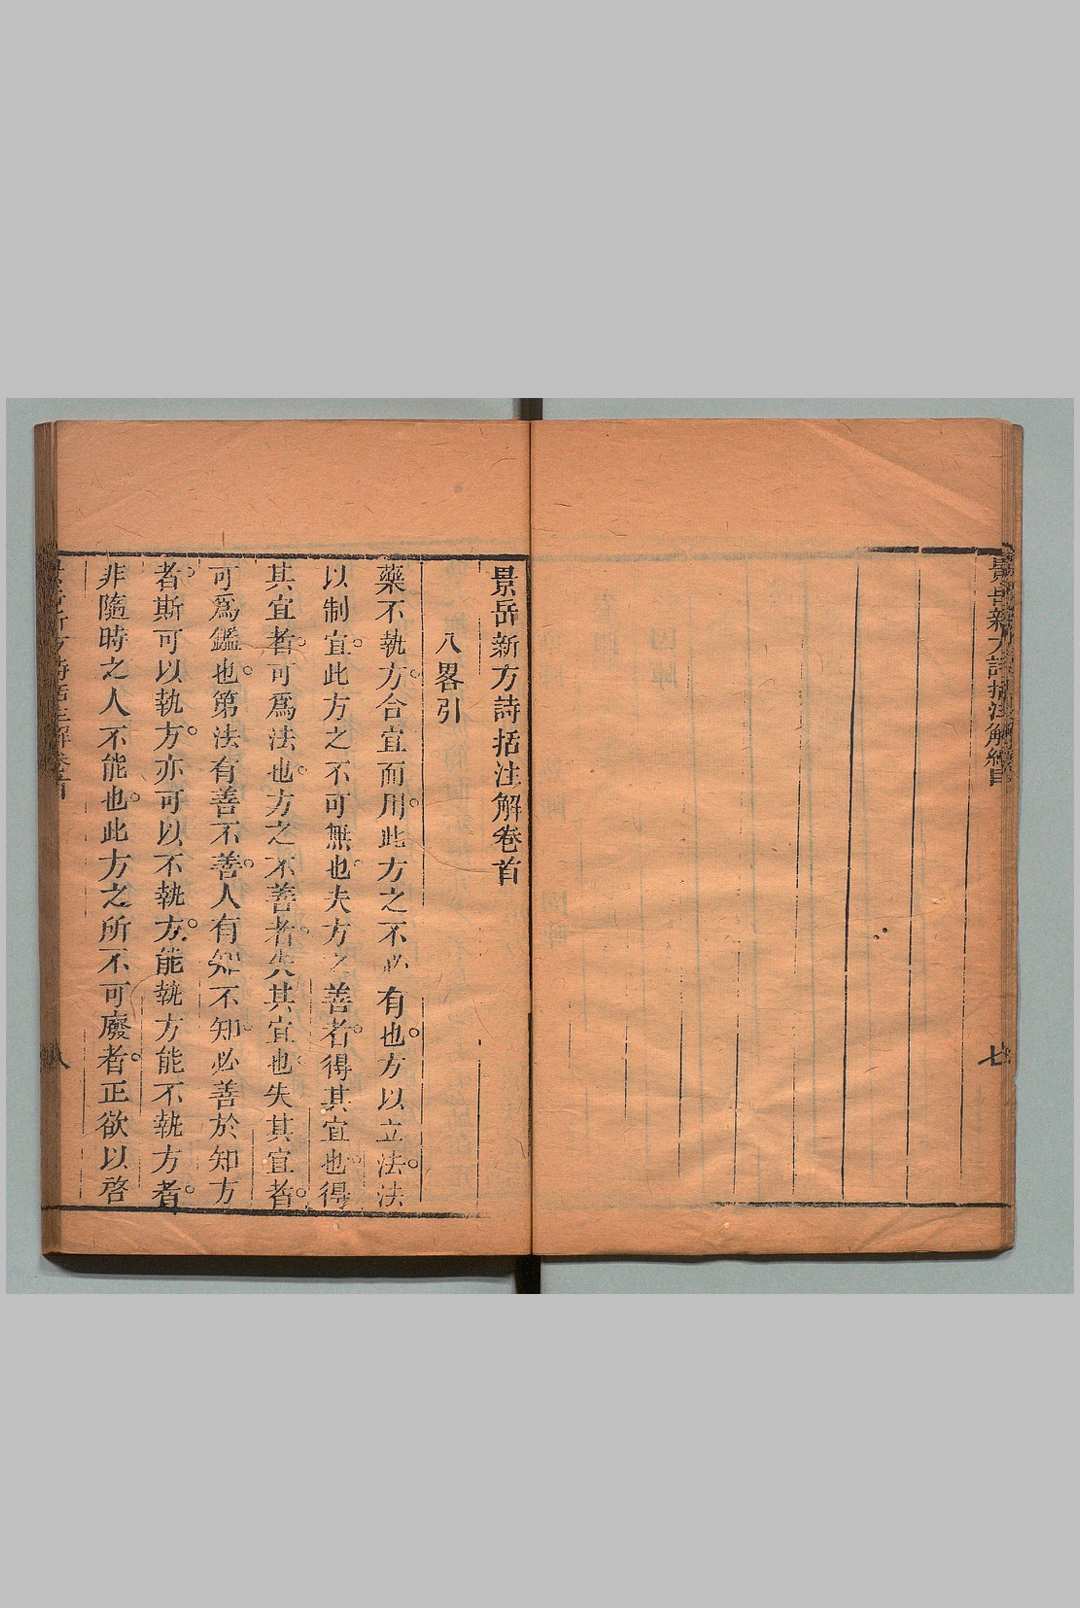 景岳新方詩括注解總目
七
景岳新方詩括注解卷首
八畧引
藥不執方。合宜而用。此方之不必有也。方以立法。法
以制宜。此方之不可無也。夫方之善者。得其宜也。得
其宜者。可爲法也。方之不善者。失其宜也。失其宜者。
可爲鑑也。第法有善不善。人有知不知。必善於知方
者。斯可以執方。亦可以不執方。能執方能不執方者。
非隨時之人不能也。此方之所不可廢者。正欲以啓
八